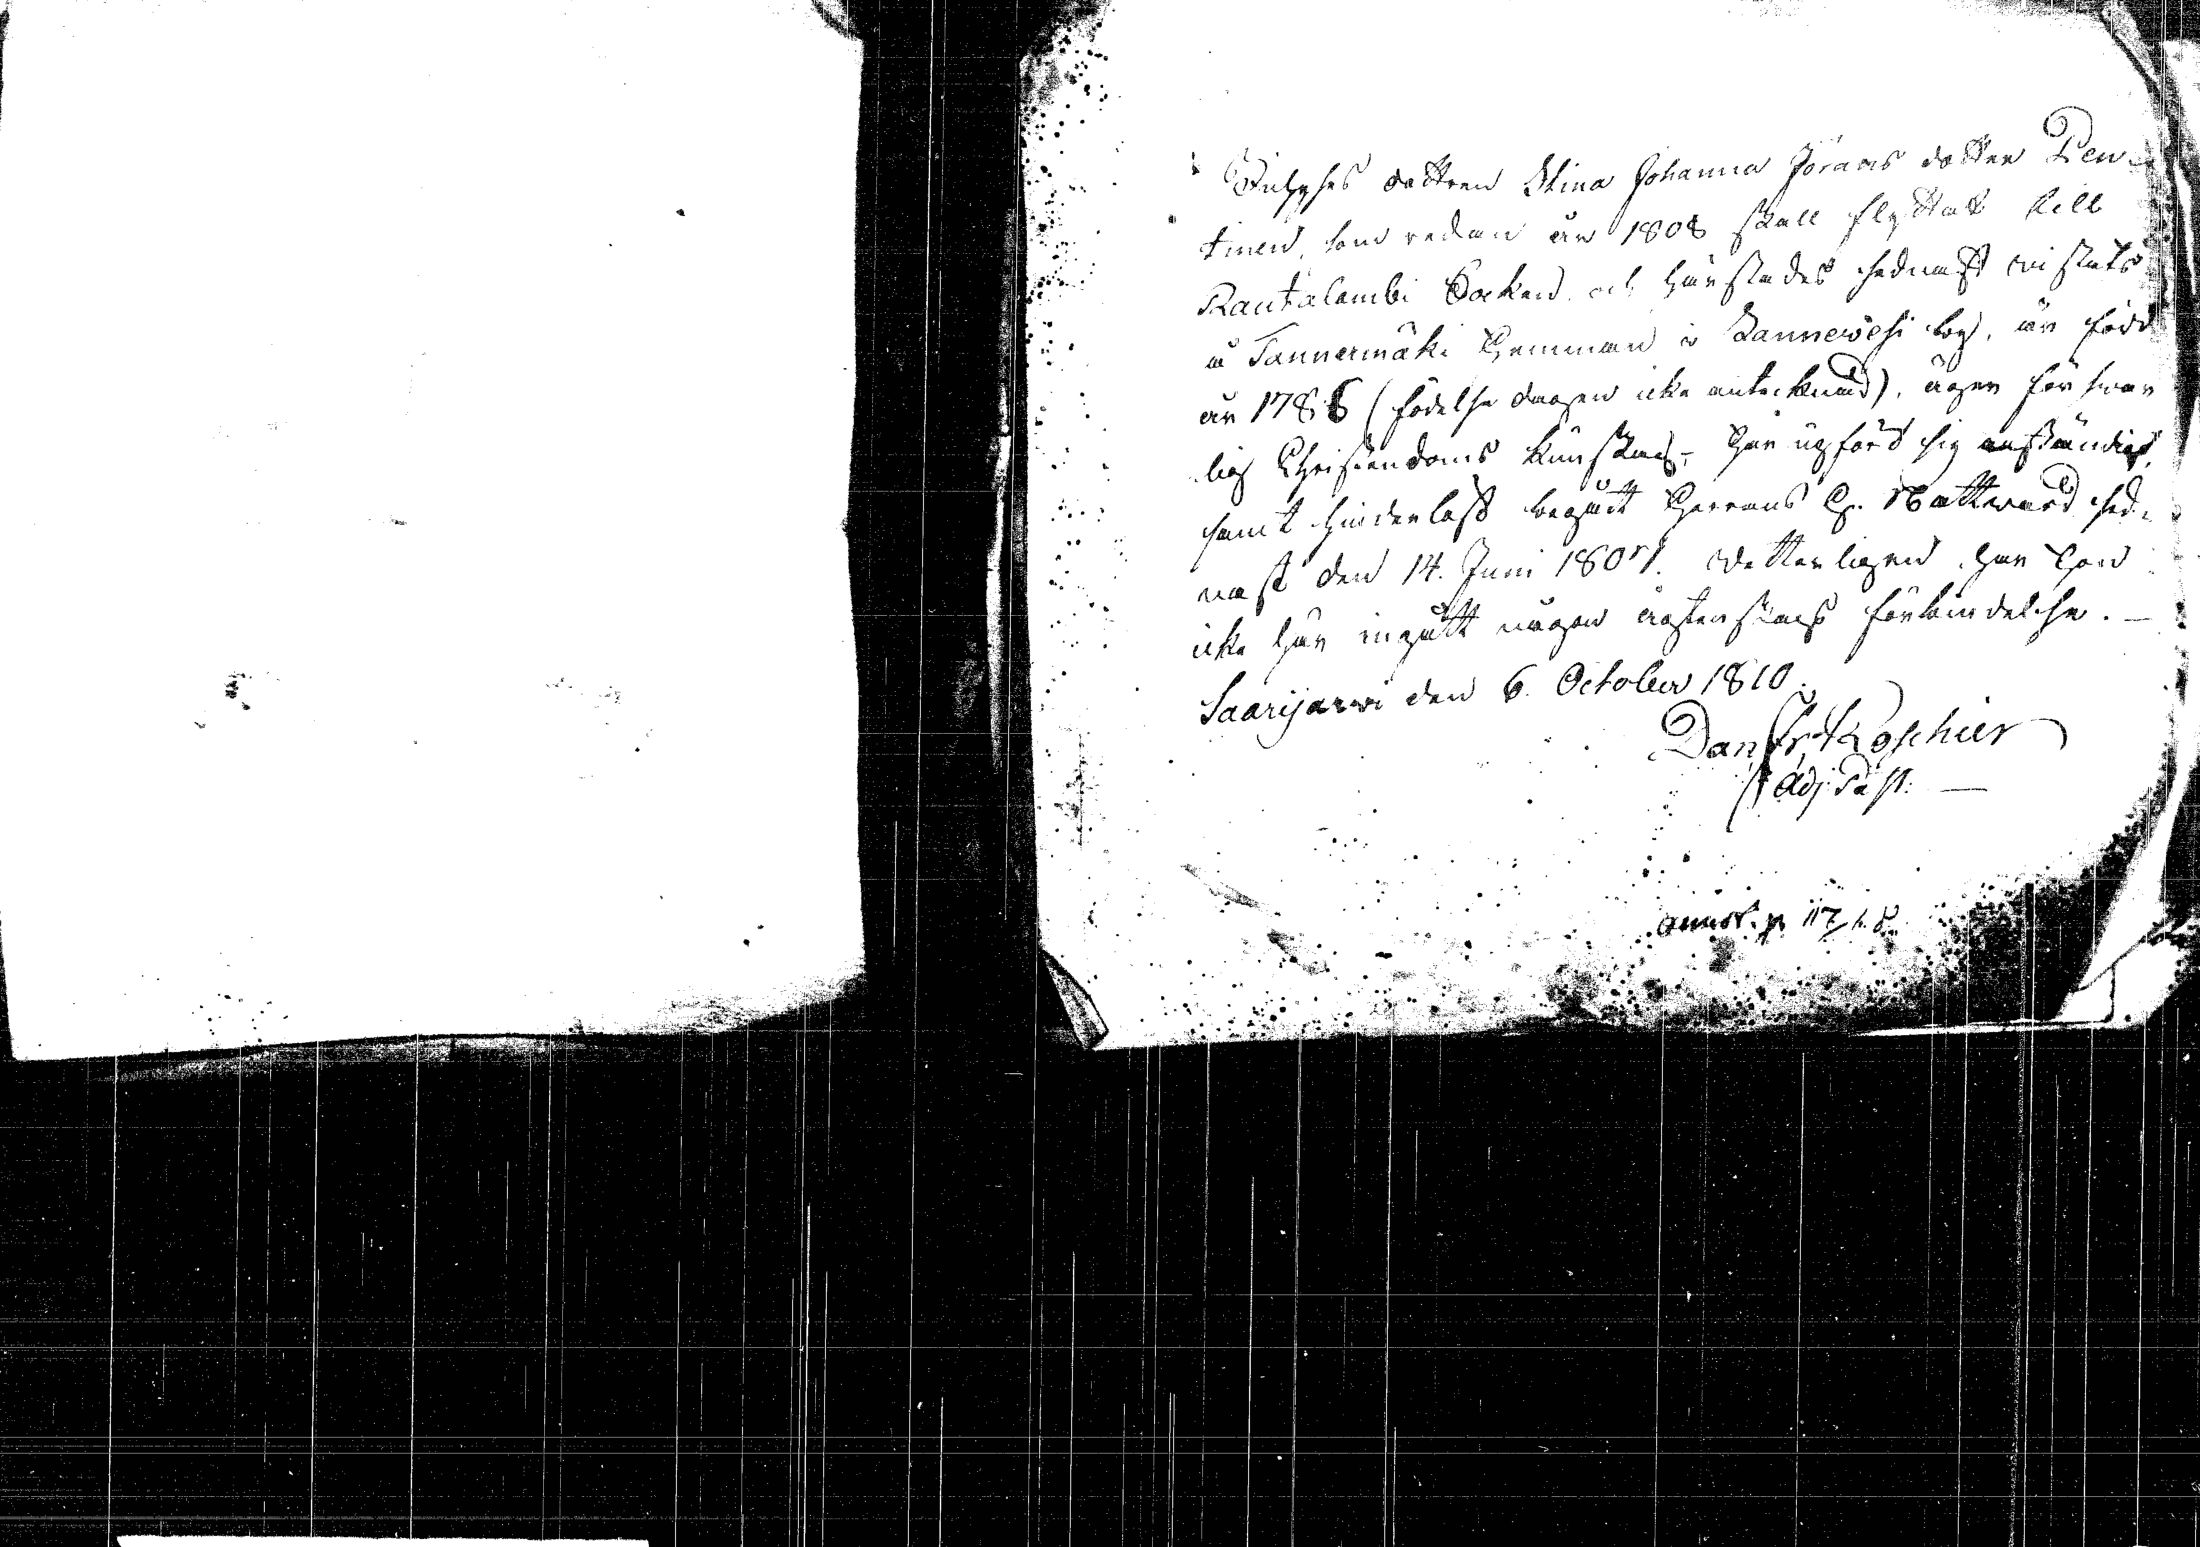 dottren Stina Johanna Jörans dotter Pen-
tinen, som redan år 1808 skall flyttat till
Rautalambi Socken och härstädes sednast vistats
å Tannermäki Hemman i Kannewesi by, är född
år 1786 (födelse dagen icke antecknad), äger förswar-
lig Christendoms kunskap, har upfört sig anständigt,
samt hinderlöst begådt Herrans H. Nattward sed-
nast den 14. Juni 1807. Wetterligen har hon
icke här ingått någon ägtenskaps förbindelse. —
Saarijärvi den 6. October 1810.
Dan Fr. Roschier
Adj. Past: —
annot. p. 117